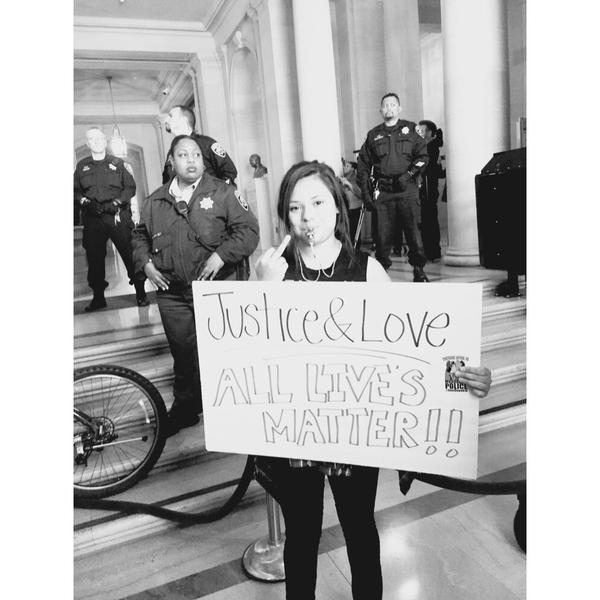 Justice & Love
ALL LIVE'S
MATTER!!
POLICE